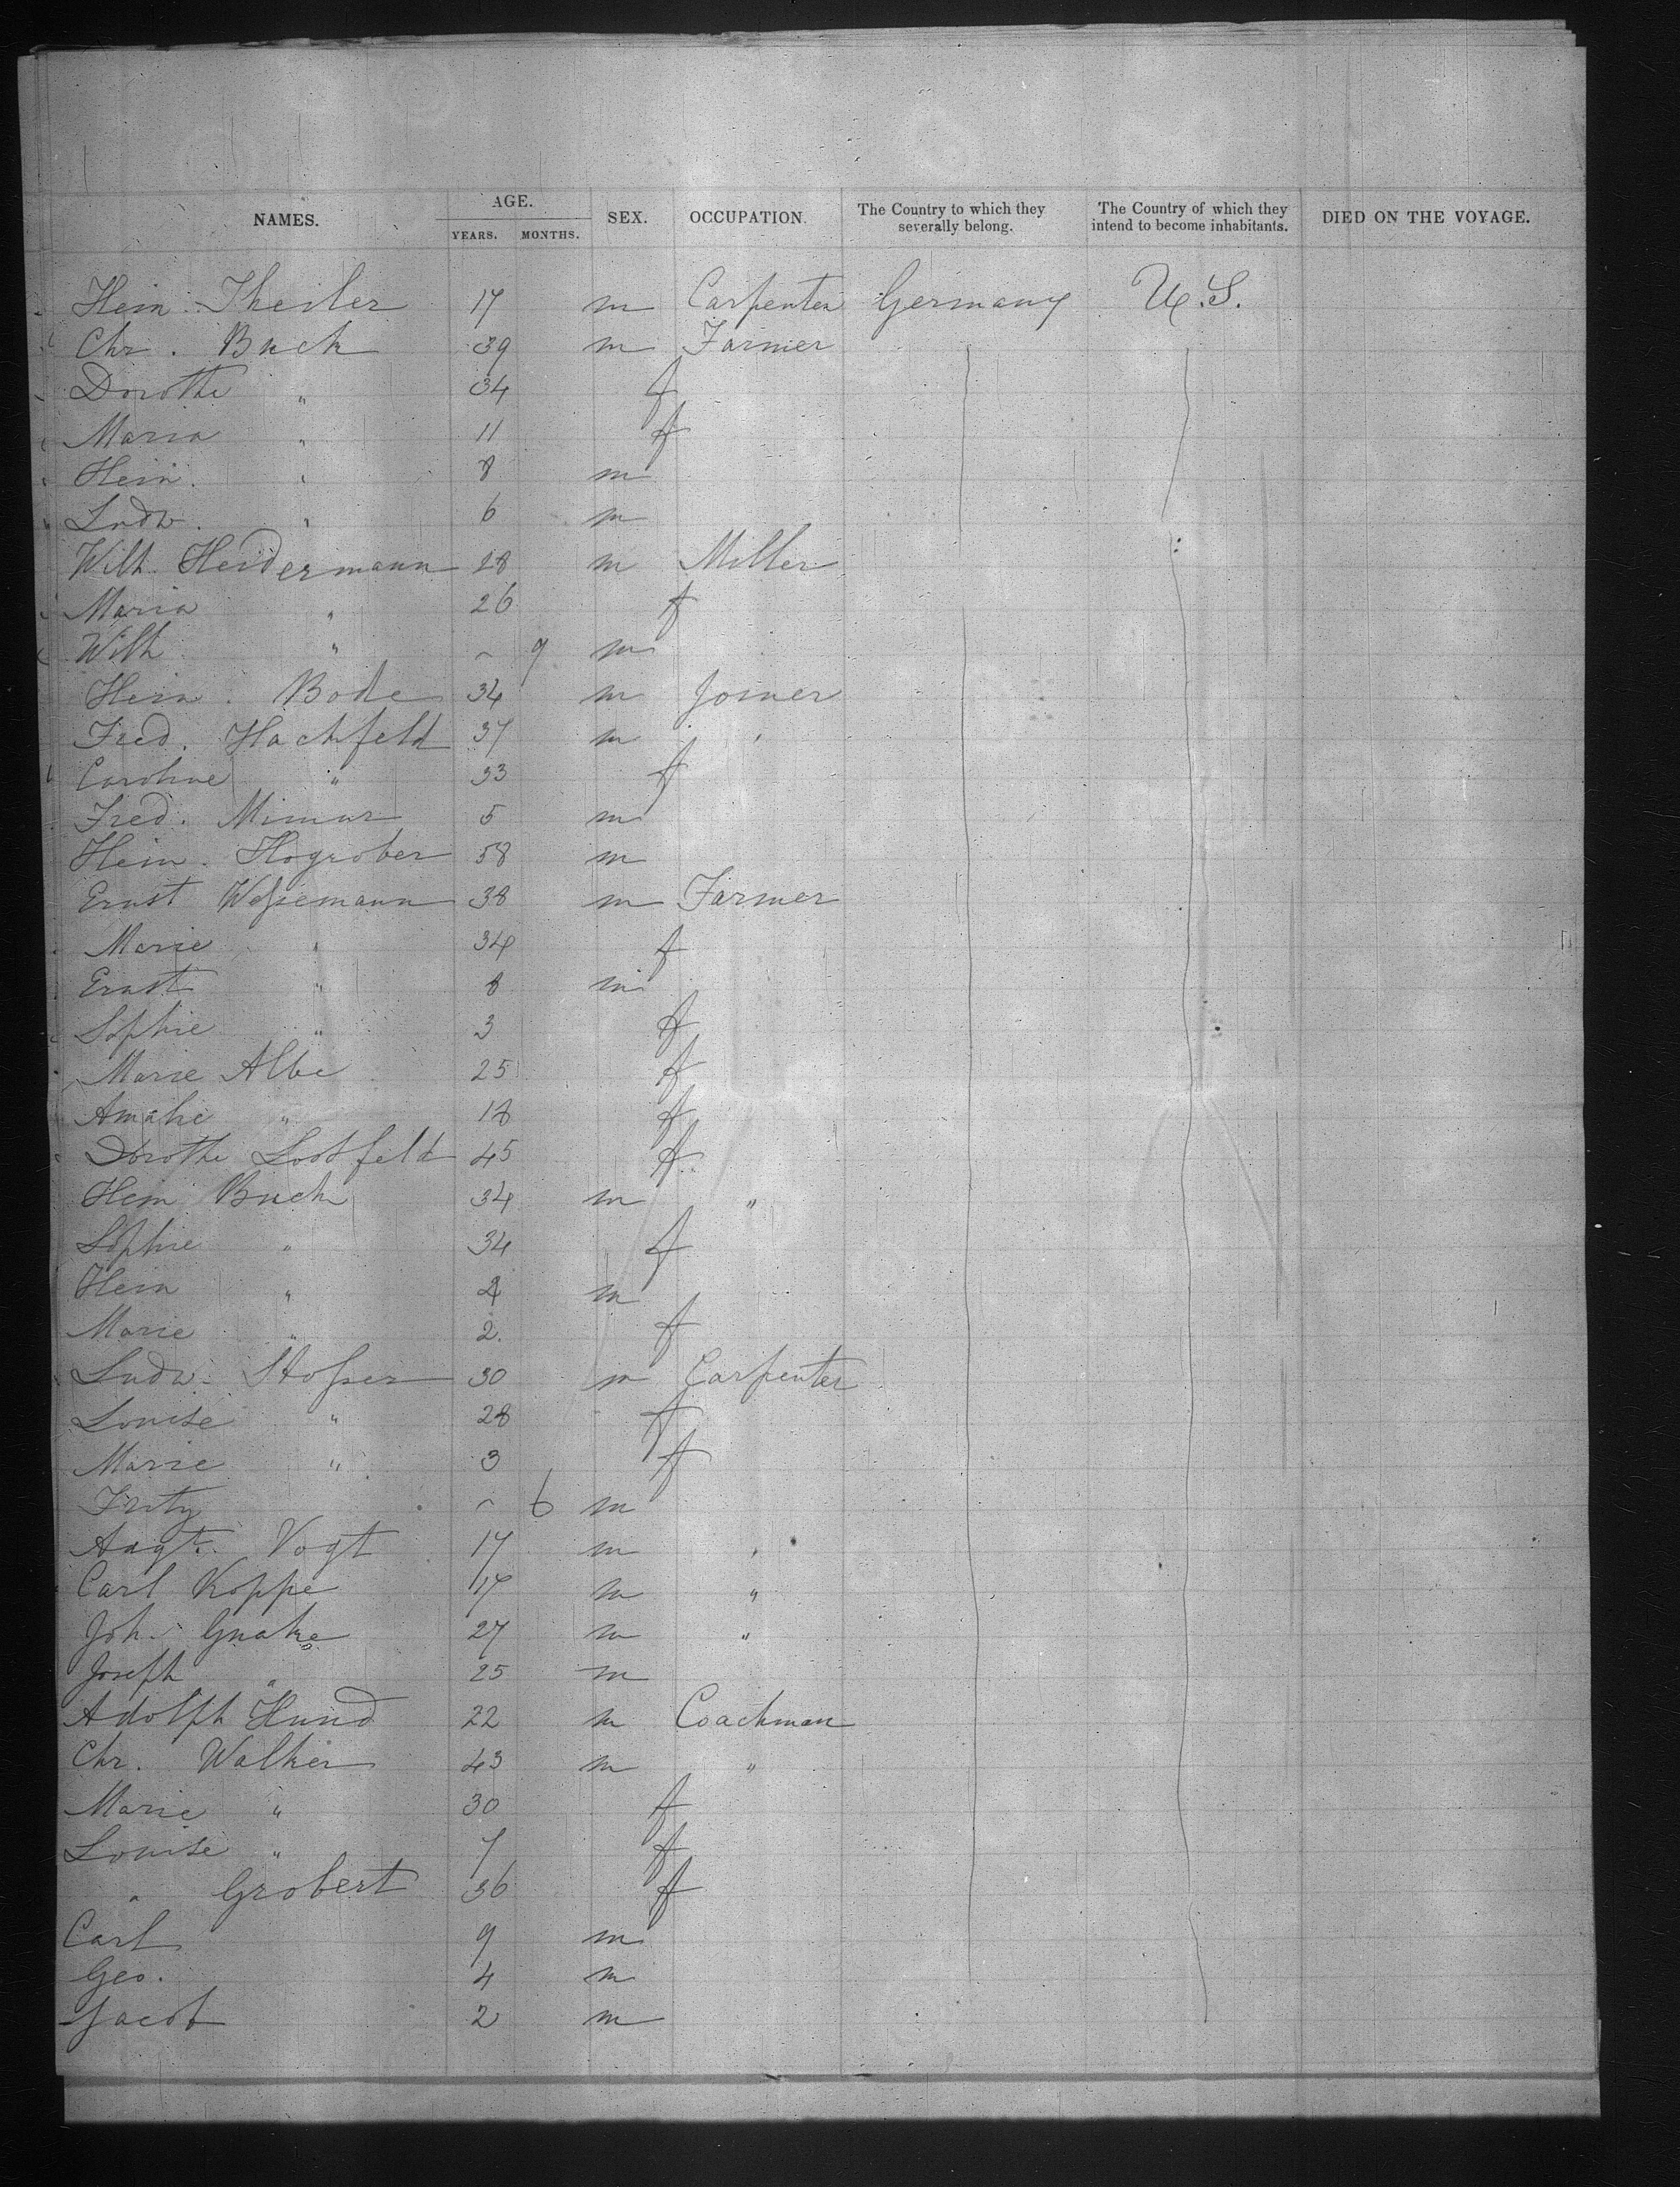 NAMES. AGE. YEARS. MONTHS. SEX. OCCUPATION. The Country to which they severally belong. The Country of which they intend to become inhabitants. DIED ON THE VOYAGE.
Hein. Theiler 17 m Carpenter Germany U.S.
Chr. Buck 39 m Farmer
Dorothe " 34 f
Maria " 11 f
Hein. " 8 m
Ludw. " 6 m
Wilh. Heidermann 28 m Miller
Maria " 26 f
Wilh " - 9 m
Hein. Bode 34 m Joiner
Fred. Hachfeld 37 m "
Caroline " 33 f
Fred. 5 m
Hein. Hogrober 58 m
Ernst Weßemann 38 m Farmer
Marie " 34 f
Ernst " 8 m
Sophie " 3 f
Marie Albe 25 f
Amalie " 18 f
Dorothe 45 f
Hein Buck 34 m "
Sophie " 34 f
Hein " 4 m
Marie " 2. f
Ludw. 30 m Carpenter
Louise " 28 f
Marie " 3 f
Fritz - 6 m
Augt. Vogt 17 m "
Carl Koppe 17 m "
Joh. Gnake 27 m "
Joseph " 25 m
Adolph Hund 22 m Coachman
Chr. Walker 43 m "
Marie " 30 f
Louise " 7 f
" Grobert 36 f
Carl 9 m
Geo. 4 m
Jacob 2 m